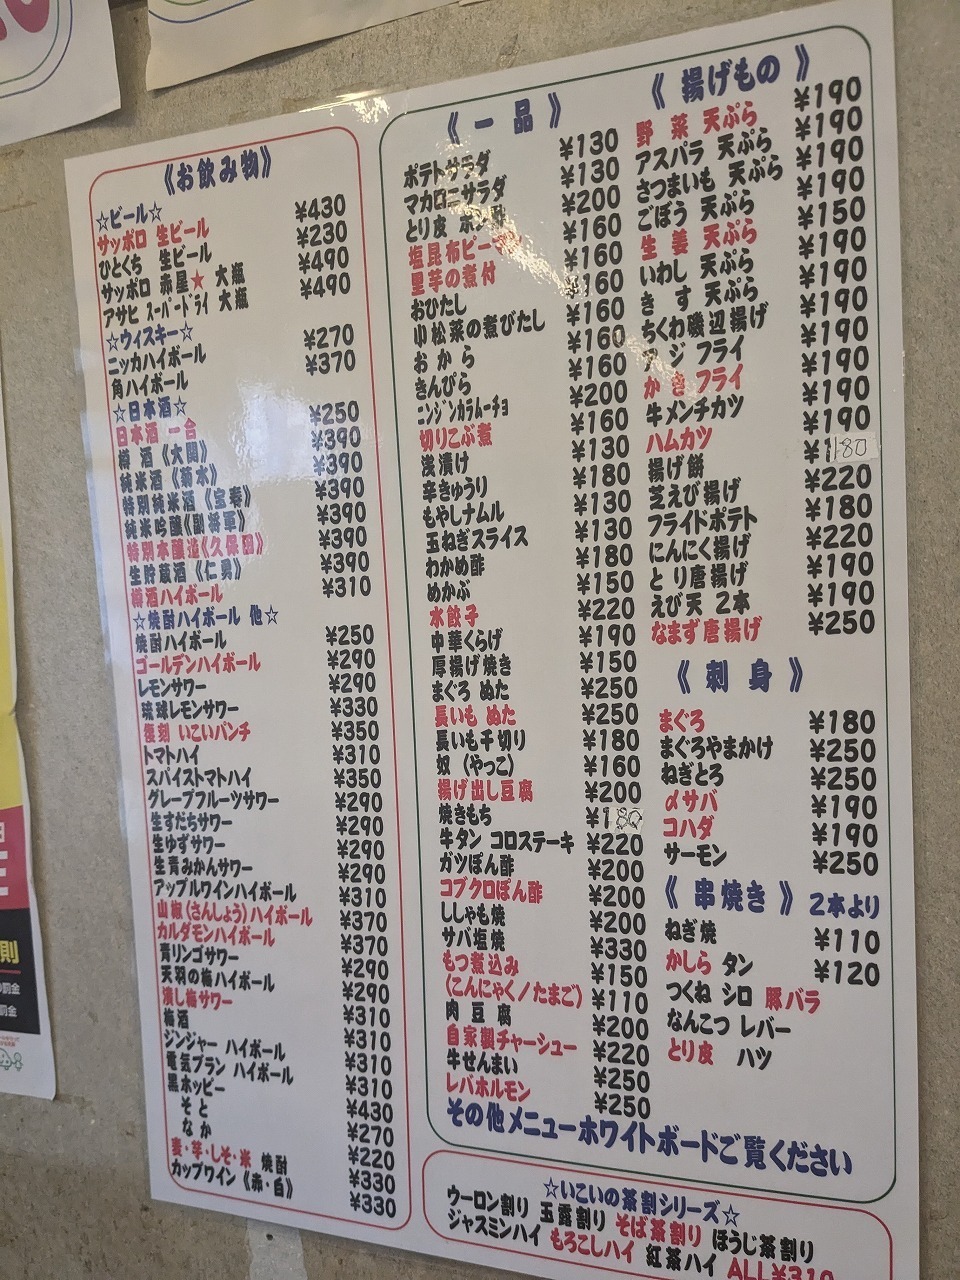 《お飲み物》
☆ビール☆
サッポロ 生ビール ¥430
ひとくち 生ビール ¥230
サッポロ 赤星★ 大瓶 ¥490
アサヒ スーパードライ 大瓶 ¥490
☆ウィスキー☆
ニッカハイボール ¥270
角ハイボール ¥370
☆日本酒☆
日本酒 一合 ¥250
樽 酒《大関》 ¥390
純米酒《菊水》 ¥390
特別純米酒《宝奏》 ¥390
純米吟醸《副将軍》 ¥390
特別本醸造《久保田》 ¥390
生貯蔵酒《仁勇》 ¥390
樽酒ハイボール ¥310
☆焼酎ハイボール 他☆
焼酎ハイボール ¥250
ゴールデンハイボール ¥290
レモンサワー ¥290
琉球レモンサワー ¥330
復刻 いこいパンチ ¥350
トマトハイ ¥310
スパイストマトハイ ¥350
グレープフルーツサワー ¥290
生すだちサワー ¥290
生ゆずサワー ¥290
生青みかんサワー ¥290
アップルワインハイボール ¥310
山椒(さんしょう)ハイボール ¥370
カルダモンハイボール ¥370
青リンゴサワー ¥290
天羽の梅ハイボール ¥290
潰し梅サワー ¥310
梅酒 ¥310
ジンジャー ハイボール ¥310
電気ブラン ハイボール ¥310
黒ホッピー ¥430
そと ¥270
なか ¥220
麦・芋・しそ・米 焼酎 ¥330
カップワイン《赤・白》 ¥330
《 一 品 》
ポテトサラダ ¥130
マカロニサラダ ¥130
とり皮 ポン酢 ¥200
塩昆布ピーマン ¥160
里芋の煮付 ¥160
おひたし ¥160
小松菜の煮びたし ¥160
お か ら ¥160
きんぴら ¥160
ニンジンカラムーチョ ¥200
切りこぶ煮 ¥160
浅漬け ¥130
辛きゅうり ¥180
もやしナムル ¥130
玉ねぎスライス ¥130
わかめ酢 ¥180
めかぶ ¥150
水餃子 ¥220
中華くらげ ¥190
厚揚げ焼き ¥150
まぐろ ぬた ¥250
長いも ぬた ¥250
長いも千切り ¥180
奴 (やっこ) ¥160
揚げ出し豆腐 ¥200
焼きもち ¥180
牛タン コロステーキ ¥220
ガツぽん酢 ¥200
コブクロぽん酢 ¥200
ししゃも焼 ¥200
サバ塩焼 ¥330
もつ煮込み ¥150
(こんにゃく/たまご) ¥110
肉 豆 腐 ¥200
自家製チャーシュー ¥220
牛せんまい ¥250
レバホルモン ¥250
《 揚げもの 》
野 菜 天ぷら ¥190
アスパラ 天ぷら ¥190
さつまいも 天ぷら ¥190
ごぼう 天ぷら ¥190
生 姜 天ぷら ¥150
いわし 天ぷら ¥190
き す 天ぷら ¥190
ちくわ磯辺揚げ ¥190
ア ジ フライ ¥190
か き フライ ¥190
牛メンチカツ ¥190
ハムカツ ¥190
揚げ餅 ¥180
芝えび揚げ ¥220
フライドポテト ¥180
にんにく揚げ ¥220
と り 唐揚げ ¥190
えび天 2本 ¥190
なまず唐揚げ ¥250
《 刺 身 》
まぐろ ¥180
まぐろやまかけ ¥250
ねぎとろ ¥250
〆サバ ¥190
コハダ ¥190
サーモン ¥250
《 串焼き 》 2本より
ねぎ焼 ¥110
かしら タン ¥120
つくね シロ 豚バラ
なんこつ レバー
とり皮 ハツ
その他メニューホワイトボードご覧ください
☆いこいの茶割シリーズ☆
ウーロン割り 玉露割り そば茶割り ほうじ茶割り
ジャスミンハイ もろこしハイ 紅茶ハイ ALL¥310
則
の罰金
罰金